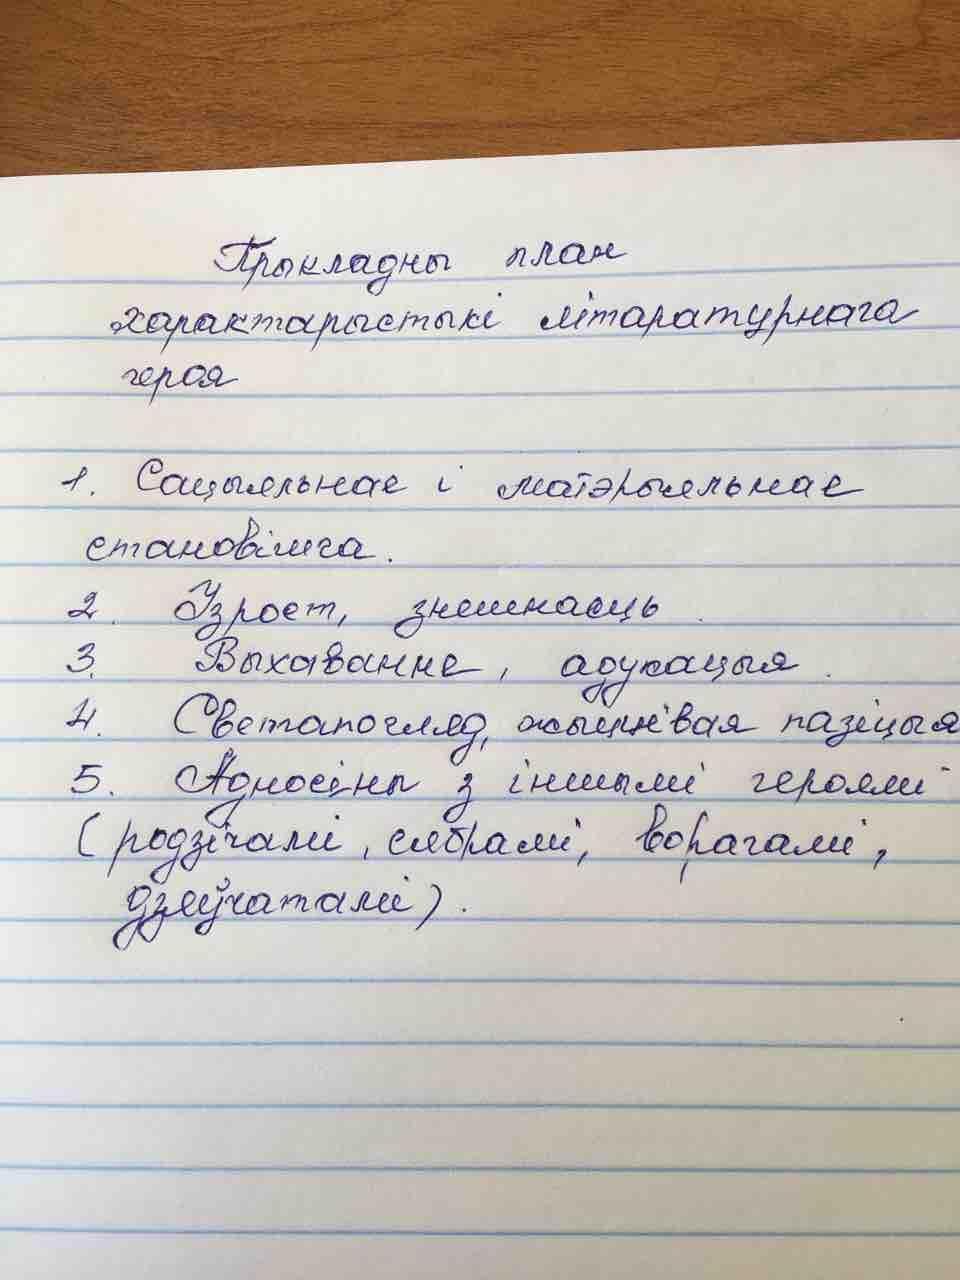 Прыкладны план
характарыстыкі літаратурнага
героя
1. Сацыяльнае і матэрыяльнае
становішча.
2. Узрост, знешнасць.
3. Выхаванне, адукацыя.
4. Светапогляд, жыццёвая пазіцыя
5. Адносіны з іншымі героямі
(родзічамі, сябрамі, ворагамі,
дзяўчатамі).